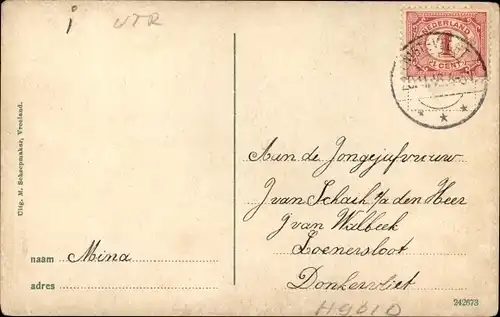 j UTR
NEDERLAND
1
1 CENT
Uitg. M. Scheepmaker, Vreeland.
Aan de Jongejufvrouw
J van Schaik p/a den Heer
J van Walbeek
Loenersloot
Donkervliet
naam Mina
adres
242673
H961D